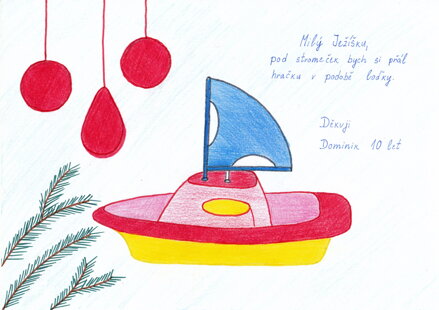 Milý Ježíšku,
pod stromeček bych si přál
hračku v podobě loďky.
Děkuji
Dominik 10 let